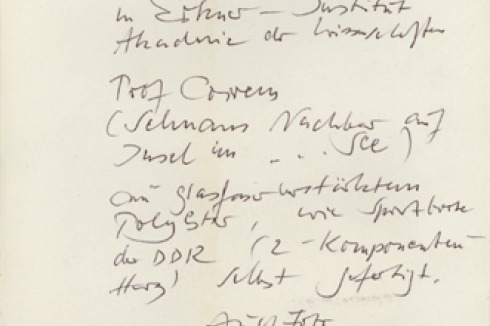 in Erkner - Institut
Akademie der Wissenschaften
Prof Correns
(Schnaus Nachbar auf
Insel im ... See)
aus glasfaserverstärktem
Polyester, wie Sportboote
der DDR (2-Komponenten-
Harz) selbst gefertigt.
Foto